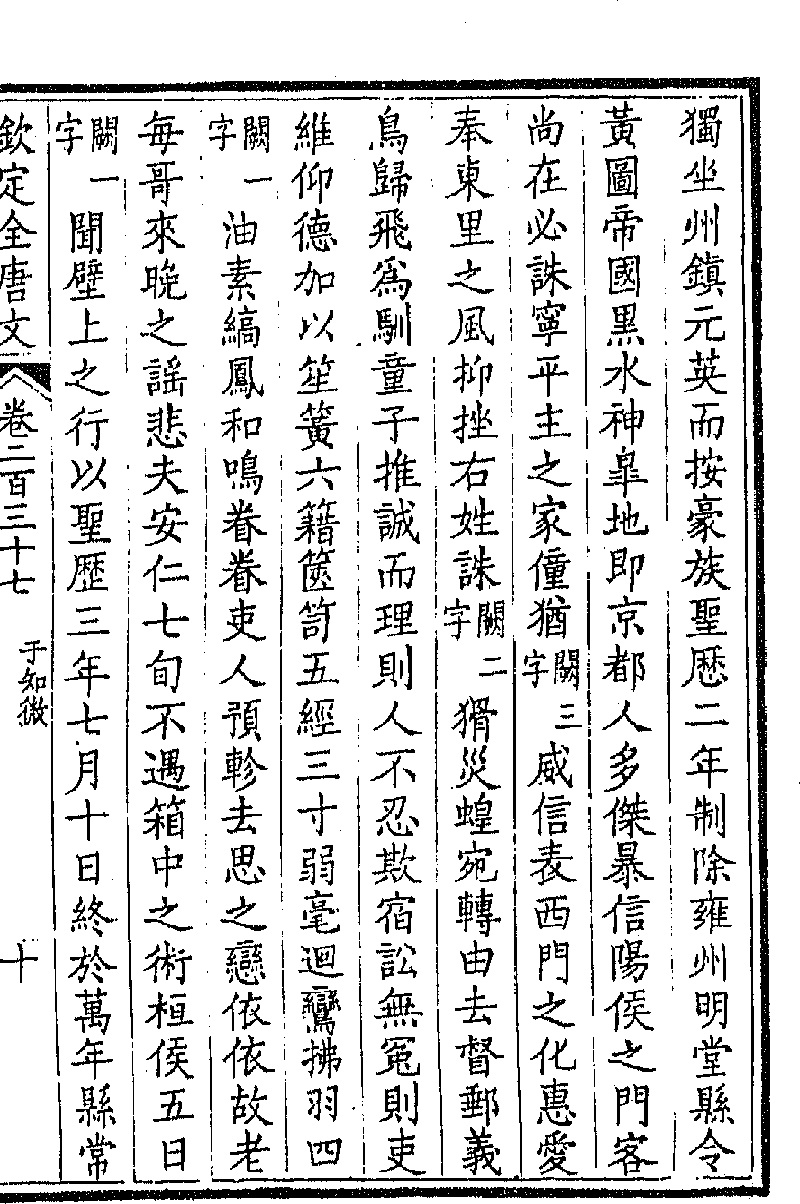 獨坐州鎮元英而按豪族聖歷二年制除雍州明堂縣令
黃圖帝國黑水神皐地即京都人多傑暴信陽侯之門客
尚在必誅寧平主之家僮猶闕三字威信表西門之化惠愛
奉東里之風抑挫右姓誅闕二字猾災蝗宛轉由去督郵義
鳥歸飛爲馴童子推誠而理則人不忍欺宿訟無冤則吏
維仰德加以笙簧六籍篋笥五經三寸弱毫迴鸞拂羽四
闕一字油素縞鳳和鳴眷眷吏人預軫去思之戀依依故老
每哥來晚之謡悲夫安仁七旬不遇箱中之術桓侯五日
闕一字聞壁上之行以聖歷三年七月十日終於萬年縣常
欽定全唐文 卷二百三十七 于知微 十